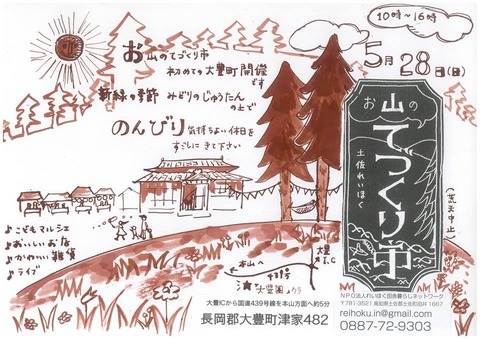 10時〜16時
5月28日(日)
お山のてづくり市
初めての大豊町開催
です
新緑の季節 みどりのじゅうたん
の上で
のんびり 気持ちよい休日を
すごしに きて下さい
お山の
てづくり市
土佐れいほく
(荒天中止)
♪こどもマルシェ
♪おいしいお店
♪かわいい雑貨
♪ライブ
本山へ
大豊IC
大豊IC から国道439号線を本山方面へ約5分
長岡郡大豊町津家482
NPO法人れいほく田舎暮らしネットワーク
〒781-3521 高知県土佐郡土佐町田井1667
reihoku.in@gmail.com
0887-72-9303